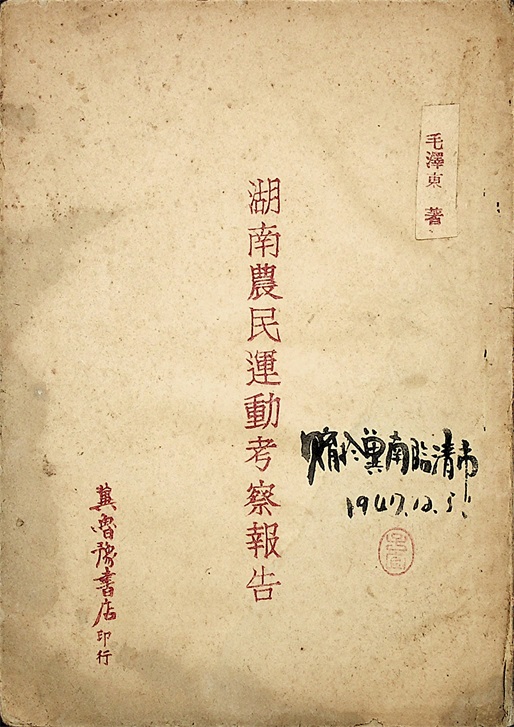 毛澤東 著
湖南農民運動考察報告
購於冀南臨清市
1947.12.5.
冀魯豫書店印行